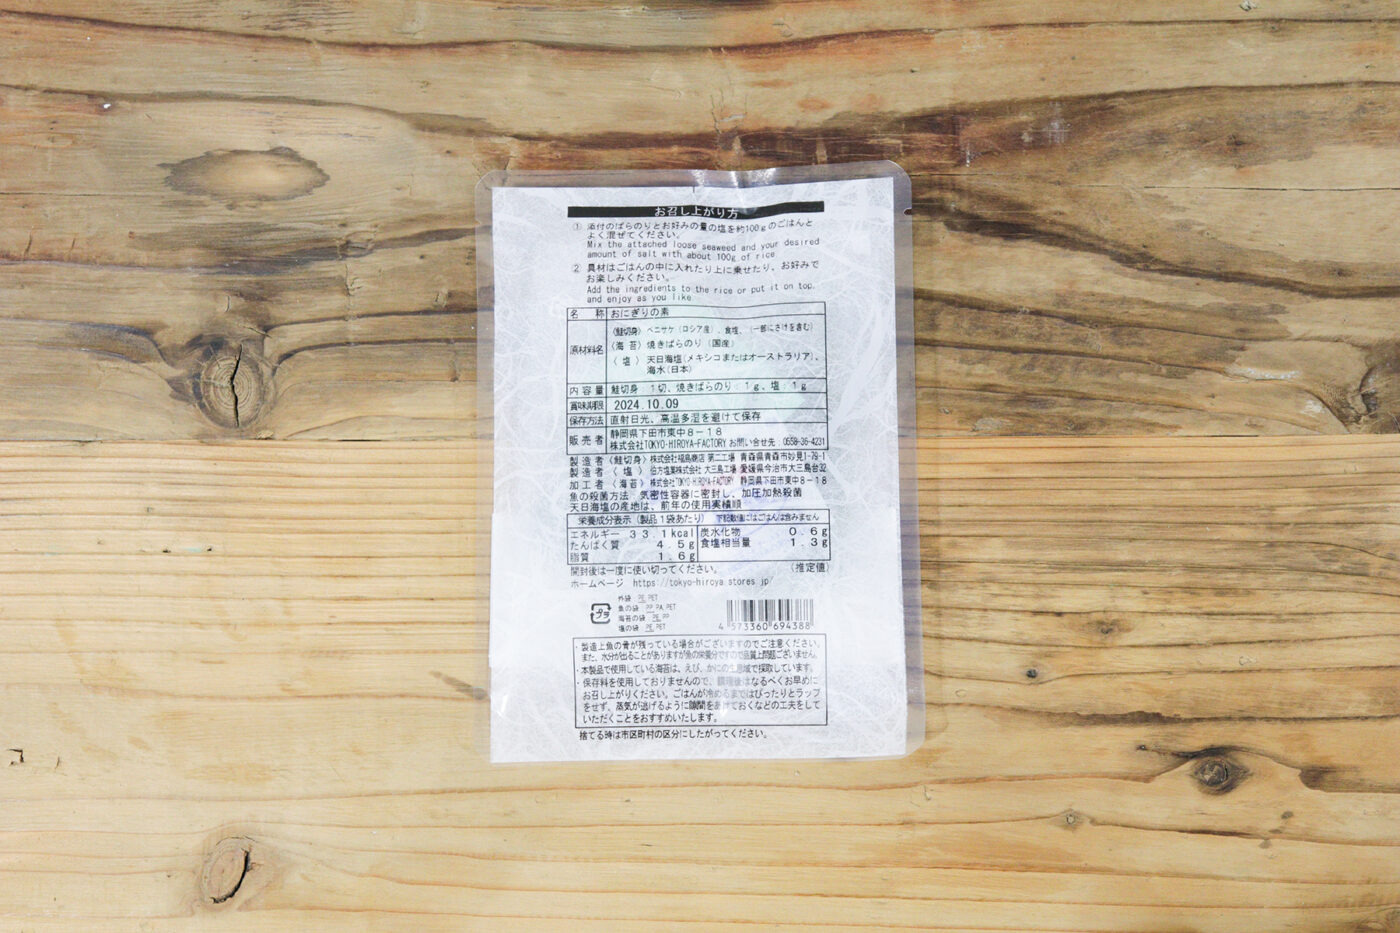 お召し上がり方
① 添付のばらのりとお好みの量の塩を約100gのごはんと
よく混ぜてください。
Mix the attached loose seaweed and your desired
amount of salt with about 100g of rice
② 具材はごはんの中に入れたり上に乗せたり、お好みで
お楽しみください。
Add the ingredients to the rice or put it on top,
and enjoy as you like
名 称 おにぎりの素
原材料名 〈鮭切身〉ベニサケ(ロシア産)、食塩、(一部にさけを含む)
〈海 苔〉焼きばらのり(国産)
〈 塩 〉天日海塩(メキシコまたはオーストラリア)、
海水(日本)
内容量 鮭切身:1切、焼きばらのり:1g、塩:1g
賞味期限 2024.10.09
保存方法 直射日光、高温多湿を避けて保存
販売者 静岡県下田市東中8-18
株式会社TOKYO-HIROYA-FACTORY お問い合せ先:0558-36-4231
製造者〈鮭切身〉株式会社福島商店 第二工場 青森県青森市妙見1-79-1
製造者〈 塩 〉伯方塩業株式会社 大三島工場 愛媛県今治市大三島台32
加工者〈海苔〉株式会社TOKYO-HIROYA-FACTORY 静岡県下田市東中8-18
魚の殺菌方法 気密性容器に密封し、加圧加熱殺菌
天日海塩の産地は、前年の使用実績順
栄養成分表示(製品1袋あたり) 下記数値にはごはんは含みません
エネルギー 33.1kcal 炭水化物 0.6g
たんぱく質 4.5g 食塩相当量 1.3g
脂質 1.6g
開封後は一度に使い切ってください。 (推定値)
ホームページ https://tokyo-hiroya.stores.jp/
プラ
外袋 PE,PET
魚の袋 PP,PA,PET
海苔の袋 PE,PP
塩の袋 PE,PET
4 573360 694388
・製造上魚の骨が残っている場合がございますのでご注意ください。
また、水分が出ることがありますが魚の栄養分ですので品質上問題ございません。
・本製品で使用している海苔は、えび、かにの生息域で採取しています。
・保存料を使用しておりませんので、調理後はなるべくお早めに
お召し上がりください。ごはんが冷めるまではぴったりとラップ
をせず、蒸気が逃げるように隙間をあけておくなどの工夫をして
いただくことをおすすめいたします。
捨てる時は市区町村の区分にしたがってください。